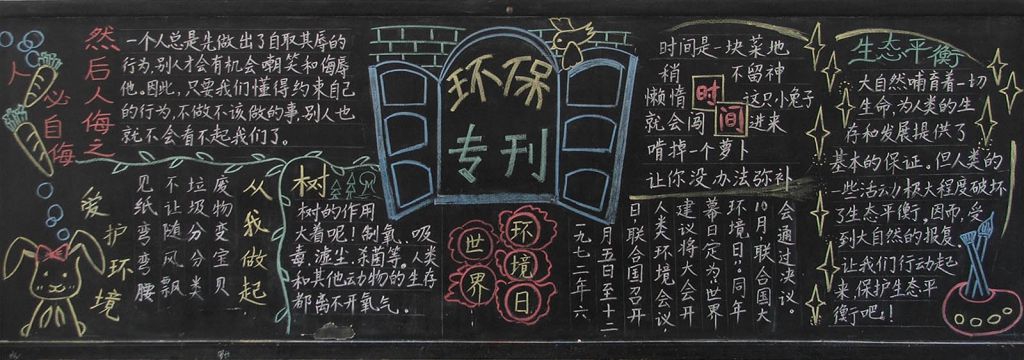 人必自侮
然后人侮之
一个人总是先做出了自取其辱的
行为,别人才会有机会嘲笑和侮辱
他。因此,只要我们懂得约束自己
的行为,不做不该做的事,别人也
就不会看不起我们了。
爱护环境
见纸弯弯腰
不让随风飘
垃圾分分类
废物变宝贝
从我做起
树
树的作用
大着呢!制氧、吸
毒、滤尘、杀菌等。人类
和其他动物的生存
都离不开氧气。
环保
专刊
世界
环境日
一九七二年六
月五日至十二
日,联合国召开
人类环境会议
建议将大会开
幕日定为“世界
环境日”。同年
10月,联合国大
会通过决议。
时间是一块菜地
稍 不留神
懒惰 时 这只小兔子
就会闯 间 进来
啃掉一个萝卜
让你没办法弥补
生态平衡
大自然哺育着一切
生命,为人类的生
存和发展提供了
基本的保证。但人类的
一些活动极大程度破坏
了生态平衡。因而,受
到大自然的报复。
让我们行动起
来,保护生态平
衡吧!